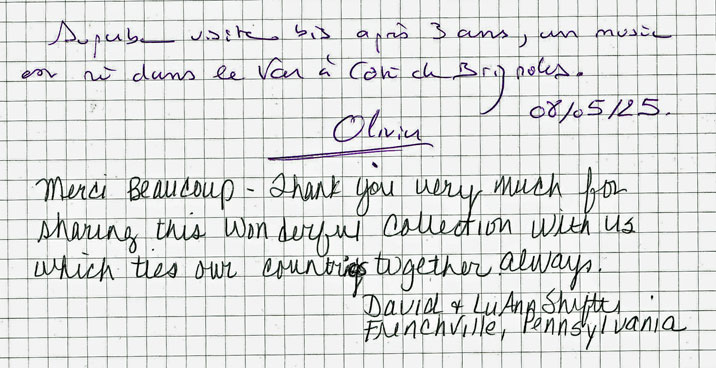 Superbe visite bis après 3 ans, un musée
est né dans le Var à Côté de Brignoles.
08/05/25.
Olivier
Merci Beaucoup - Thank you very much for
sharing this Wonderful Collection with us
which ties our countries together always.
David & LuAnn
Frenchville, Pennsylvania